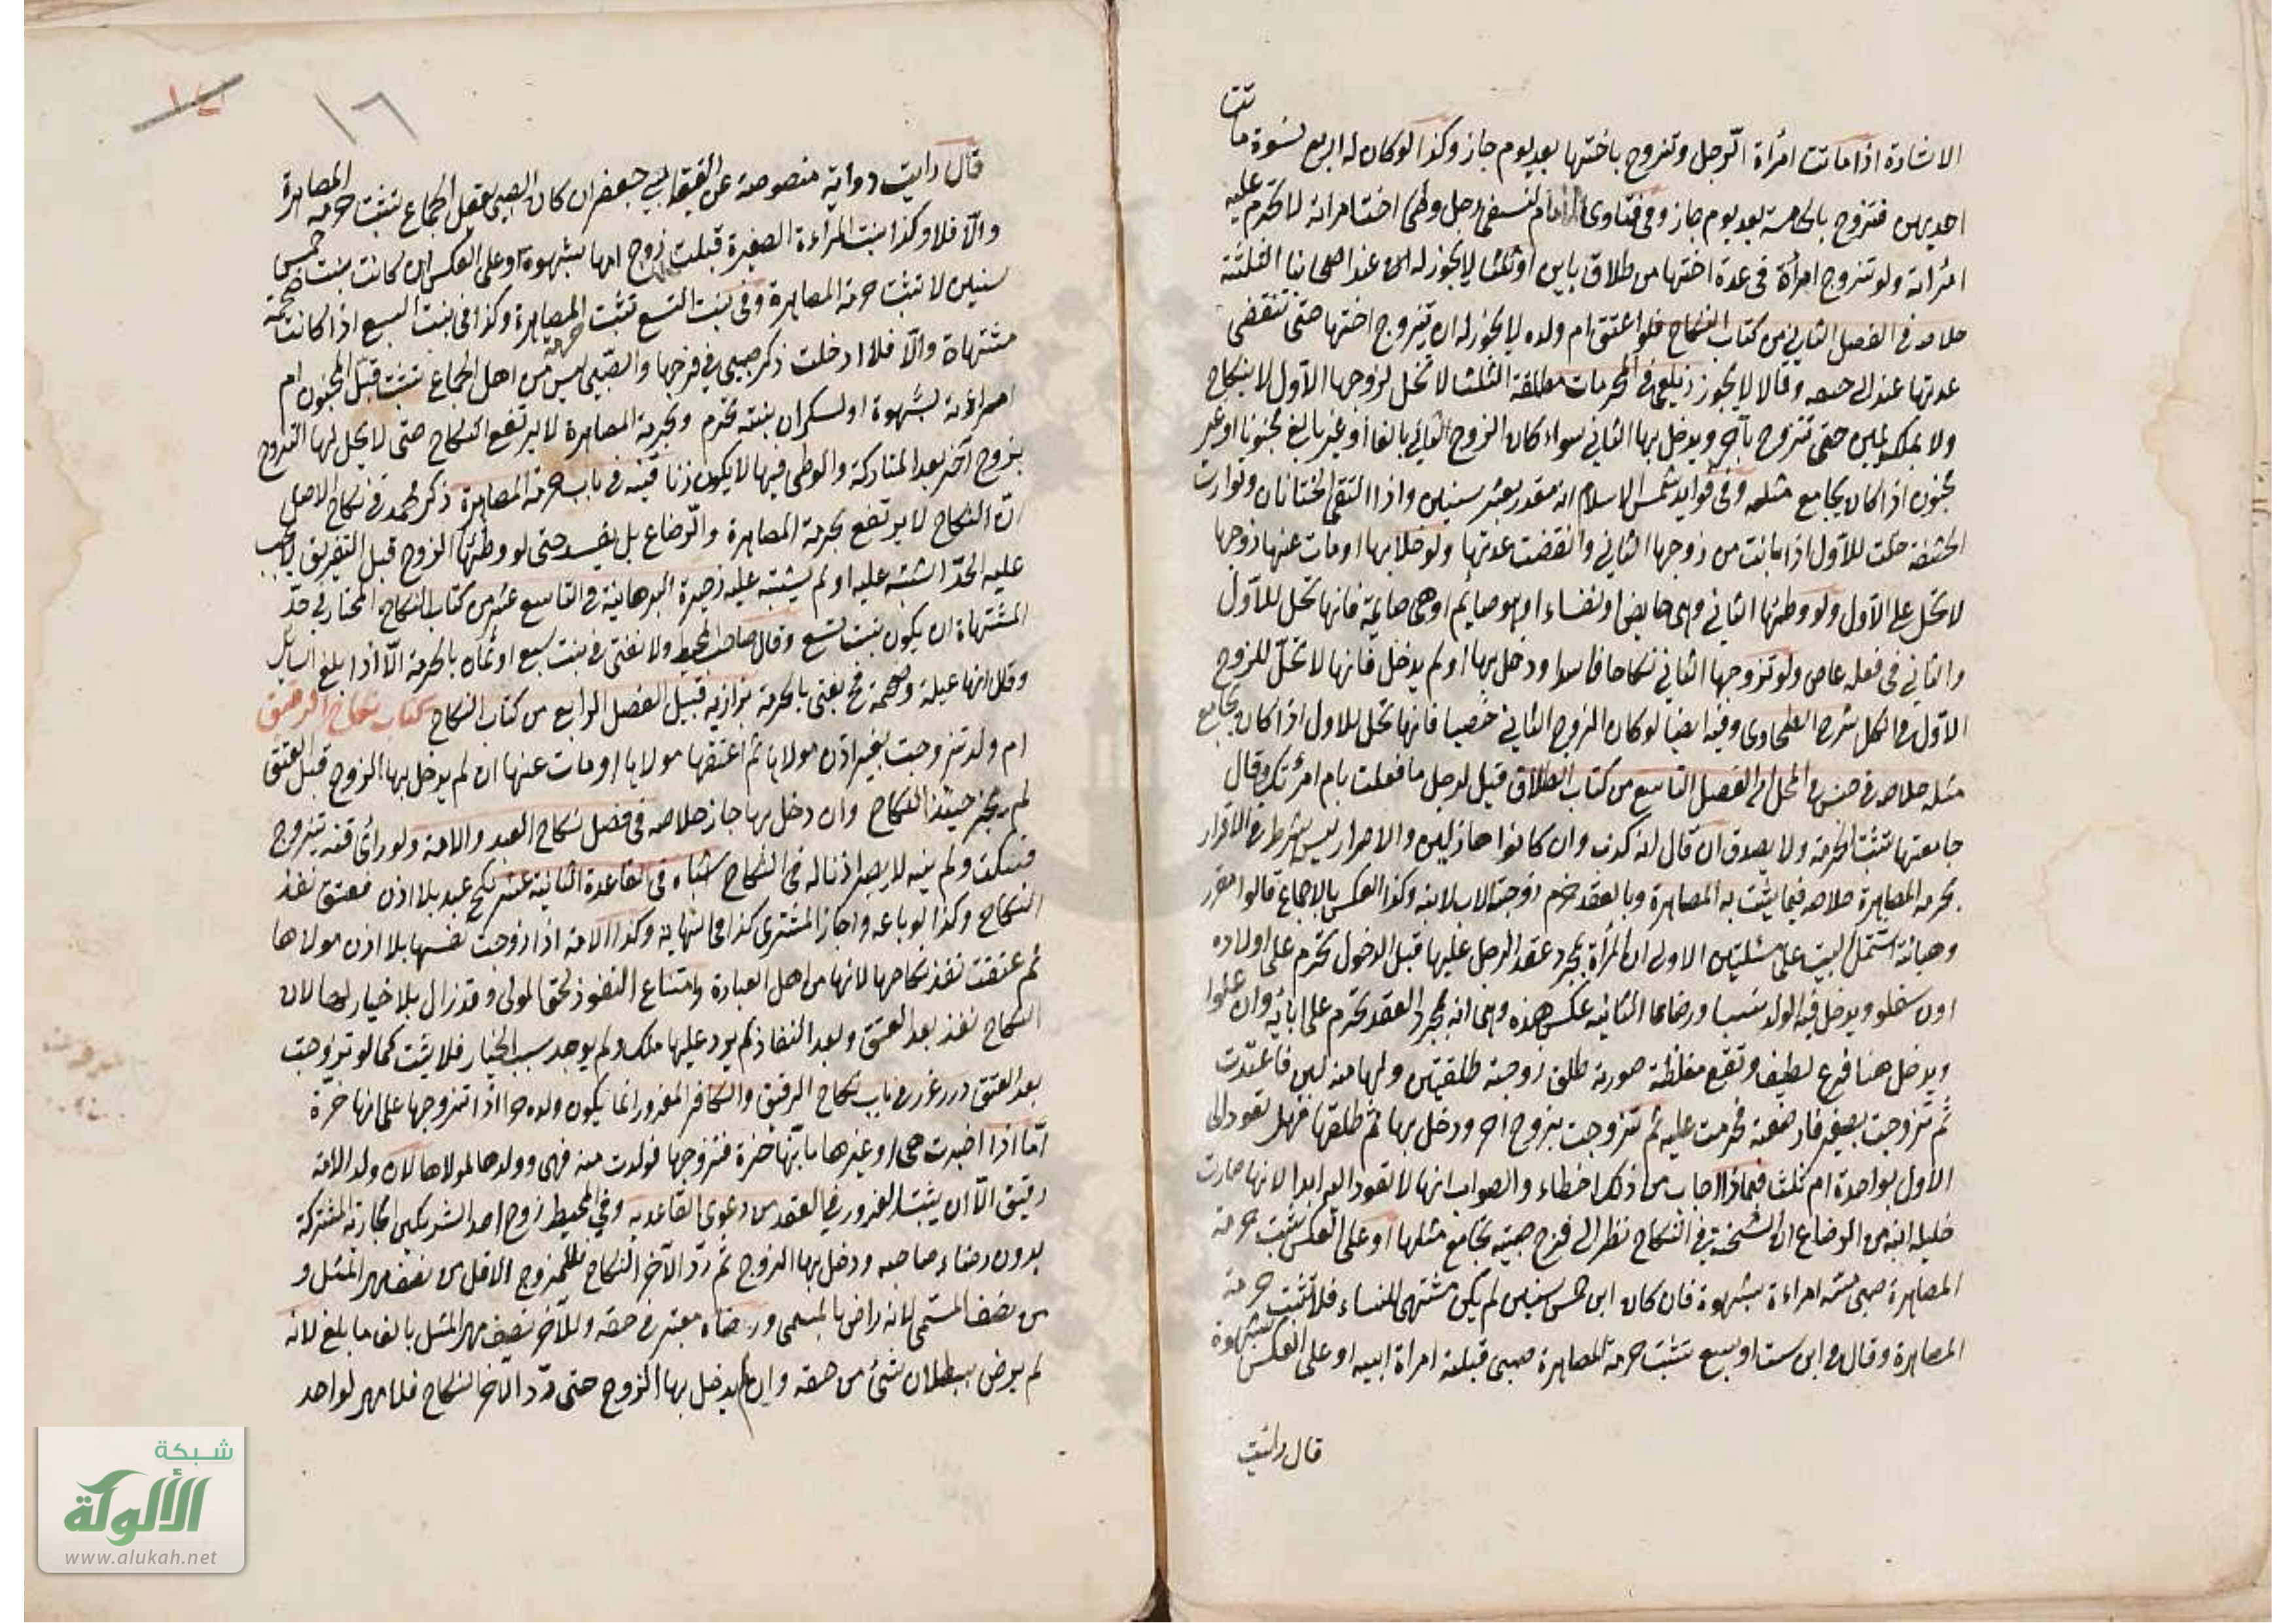 الاشارة اذا ماتت امرأة الرجل وتزوج باختها بعد يوم جاز وكذا لو كان له اربع نسوة ماتت
احديهن فتزوج بالخامسة بعد يوم جاز وفي فتاوى الامام النسفي رجل وطئ اخت امرأته لا تحرم عليه
امرأته ولو تزوج امرأة في عدة اختها من طلاق باين او ثلث لا يجوز له عند اصحابنا الثلثة
خلاصه في الفصل الثاني من كتاب النكاح فلو اعتق ام ولده لا يجوز له ان يتزوج اختها حتى تنقضى
عدتها عند ابي حنيفه وقالا يجوز زيلعي في المحرمات مطلقة الثلث لا تحل لزوجها الأول لا بنكاح
ولا بملك يمين حتى تتزوج بآخر ويدخل بها الثاني سواء كان الزوج الثاني بالغا او غير بالغ مجنونا او غير
مجنون اذا كان يجامع مثله وفي فوايد شمس الاسلام انه مقدر بعشر سنين واذا التقى الختانان وتوارت
الحشفة حلت للأول اذا بانت من زوجها الثاني وانقضت عدتها ولو خلا بها او مات عنها زوجها
لا تحل على الأول ولو وطئها الثاني وهي حايض او نفساء او هو صايم او هي صايمة فانها تحل للأول
والثاني في فعله عاص ولو تزوجها الثاني نكاحا فاسدا ودخل بها او لم يدخل فانها لا تحل للزوج
الأول في الكل شرح الطحاوى وفيه ايضا لو كان الزوج الثاني خصيا فانها تحل للاول اذا كان يجامع
مثله خلاصه في جنس في المحل في الفصل التاسع من كتاب الطلاق قيل لرجل ما فعلت بام امرأتك وقال
جامعتها تثبت الحرمة ولا يصدق ان قال انه كذب وان كانوا هازلين والاصرار ليس بشرط في الاقرار
بحرمه المصاهرة خلاصه فيما يثبت به المصاهرة وبالعقد حرم زوجة الاب لابنه وكذا العكس بالاجماع قالوا مقرر
وهبانيه اشتمل البيت على مسئلتين الاولى ان المرأة بمجرد عقد الرجل عليها قبل الدخول تحرم على اولاده
وان سفلو ويدخل فيه الولد نسبا ورضاعا الثانيه عكس هذه وهي انه بمجرد العقد تحرم على ابائه وان علوا
ويدخل هنا فرع لطيف وتقع مغلطة صورته طلق زوجته طلقتين ولها منه لبن فاعتدت
ثم تزوجت بصغير فارضعته فحرمت عليه ثم تزوجت بزوج اخر ودخل بها ثم طلقها فهل تعود الى
الأول بواحدة ام بثلث فماذا اجاب من ذلك اخطاء والصواب انها لا تعود اليه ابدا لانها صارت
حليله ابنه من الرضاع ابن الشحنه في النكاح نظر الى فرج صبية تجامع مثلها او على العكس تثبت حرمة
المصاهرة صبى مسته امراءة بشهوة فان كان ابن خمس سنين لم يكن مشتهى للنساء فلا تثبت حرمة
المصاهرة وقال في ابن ست او سبع تثبت حرمة المصاهرة صبى قبلته امراة ابيه او على العكس بشهوة
قال رايت
١٦
قال رايت رواية منصوصة عن الفقيه ابي جعفر ان كان الصبي يعقل الجماع تثبت حرمة المصاهرة
والا فلا وكذا بنت المراءة الصغيرة قبلت زوج امها بشهوة او على العكس ان كانت بنت خمس
سنين لا تثبت حرمة المصاهرة وفي بنت التسع تثبت حرمة المصاهرة وكذا في بنت السبع اذا كانت ضخمة
مشتهاة والا فلا ادخلت ذكر صبى في فرجها والصبى ليس من اهل الجماع تثبت قبل المجنون ام
امراءته بشهوة او السكران بنته تحرم وبحرمة المصاهرة لا يرتفع النكاح حتى لا يحل لها التزوج
بزوج آخر بعد المتاركة والوطى فيها لا يكون زنا قنيه في باب حرمة المصاهرة ذكر محمد في نكاح الاصل
ان النكاح لا يرتفع بحرمة المصاهرة والرضاع بل يفسد حتى لو وطئها الزوج قبل التفريق لا يجب
عليه الحد اشتبه عليه او لم يشتبه عليه ذخيرة البرهانية في التاسع عشر من كتاب النكاح المختار في حد
المشتهاة ان يكون بنت تسع وقال صاحب المحيط ولا نفتى في بنت سبع او ثمان بالحرمة الا اذا بلغ السائل
وقال انها عبلة وضخمة فح يفتى بالحرمة بزازيه قبيل الفصل الرابع من كتاب النكاح كتاب نكاح الرقيق
ام ولد تزوجت بغير اذن مولاها ثم اعتقها مولاها او مات عنها ان لم يدخل بها الزوج قبل العتق
لم يجز حينئذ النكاح وان دخل بها جاز خلاصه في فصل نكاح العبد والامة ولو رأى قنه يتزوج
فسكت ولم ينه لا يصير اذنا له في النكاح اشباه في القاعدة الثانية عشر نكح عبد بلا اذن فعتق نفذ
النكاح وكذا لو باعه واجاز المشترى كذا في النهاية وكذا الامة اذا زوجت نفسها بلا اذن مولاها
ثم عتقت نفذ نكاحها لانها من اهل العبارة وامتناع النفوذ لحق المولى وقد زال بلا خيار لها لان
النكاح نفذ بعد العتق وبعد النفاذ لم يرد عليها ملك ولم يوجد سبب الخيار فلا يثبت كما لو تزوجت
بعد العتق درر غرر في باب نكاح الرقيق والكافر المغرور انما يكون ولده حرا اذا تزوجها على انها حرة
اما اذا اخبرت هي او غيرها بانها حرة فتزوجها فولدت منه فهى وولدها لمولاها لان ولد الامة
رقيق الا ان يثبت الغرور في العقد من دعوى القاعديه وفي المحيط زوج احد الشريكين الجارية المشتركة
بدون رضاء صاحبه ودخل بها الزوج ثم رد الآخر النكاح فللمزوج الاقل من نصف مهر المثل و
من نصف المسمى لانه راض بالمسمى ورضاه معتبر في حقه وللآخر نصف مهر المثل بالغا ما بلغ لانه
لم يرض ببطلان شئ من حقه وان لم يدخل بها الزوج حتى رد الآخر النكاح فلا مهر لواحد
شبكة
الألوكة
www.alukah.net